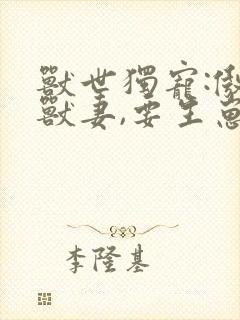 獸世獨寵:傲
獸妻,要生崽
李隆基